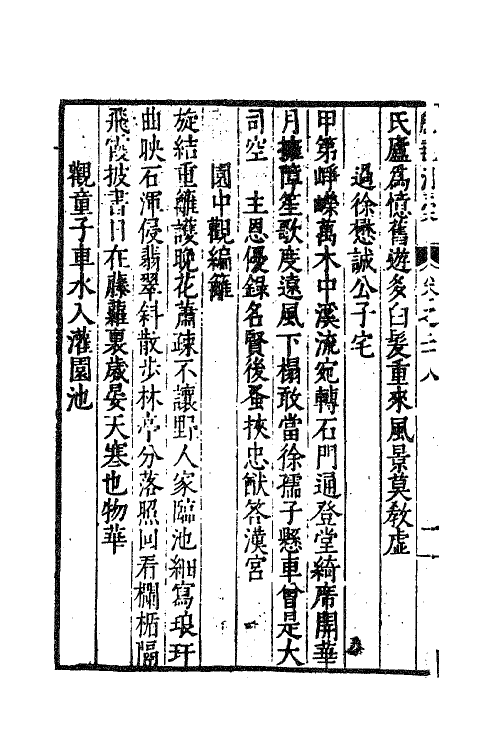 卷之二八
氏廬為憶舊遊多白髮重來風景莫教虛
過徐懋誠公子宅
甲第崢嶸萬木中溪流宛轉石門通登堂綺席開華
月擁障笙歌度遠風下榻敢當徐孺子懸車曾是大
司空 主恩優錄名賢後蚤挾忠猷答漢宮
園中觀編籬
旋結重籬護晚花蕭疎不讓野人家臨池細寫琅玕
曲映石渾侵翡翠斜散步林亭分落照回看欄楯隔
飛霞披書日在藤蘿裏歲晏天寒也物華
觀童子車水入灌園池